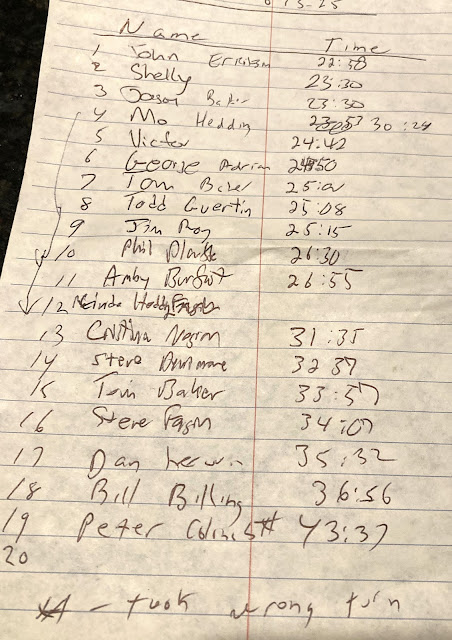 6 15-25
Name Time
1 John Erikson 22:58
2 Shelly 23:30
3 Jason Baker 23:30
4 Mo Hedding 30:24
5 Victor 24:42
6 George Adrian
7 Tom Baker
8 Todd Guertin 25:08
9 Jim Roy 25:15
10 Phil 26:30
11 Amby Burfoot 26:55
12
13 31:35
14 Steve 32 37
15 Tom Baker 33:57
16 Steve Fagin 34:07
17 Dan 35:32
18 Bill Billing 36:56
19 Peter 43:37
20
- took wrong turn